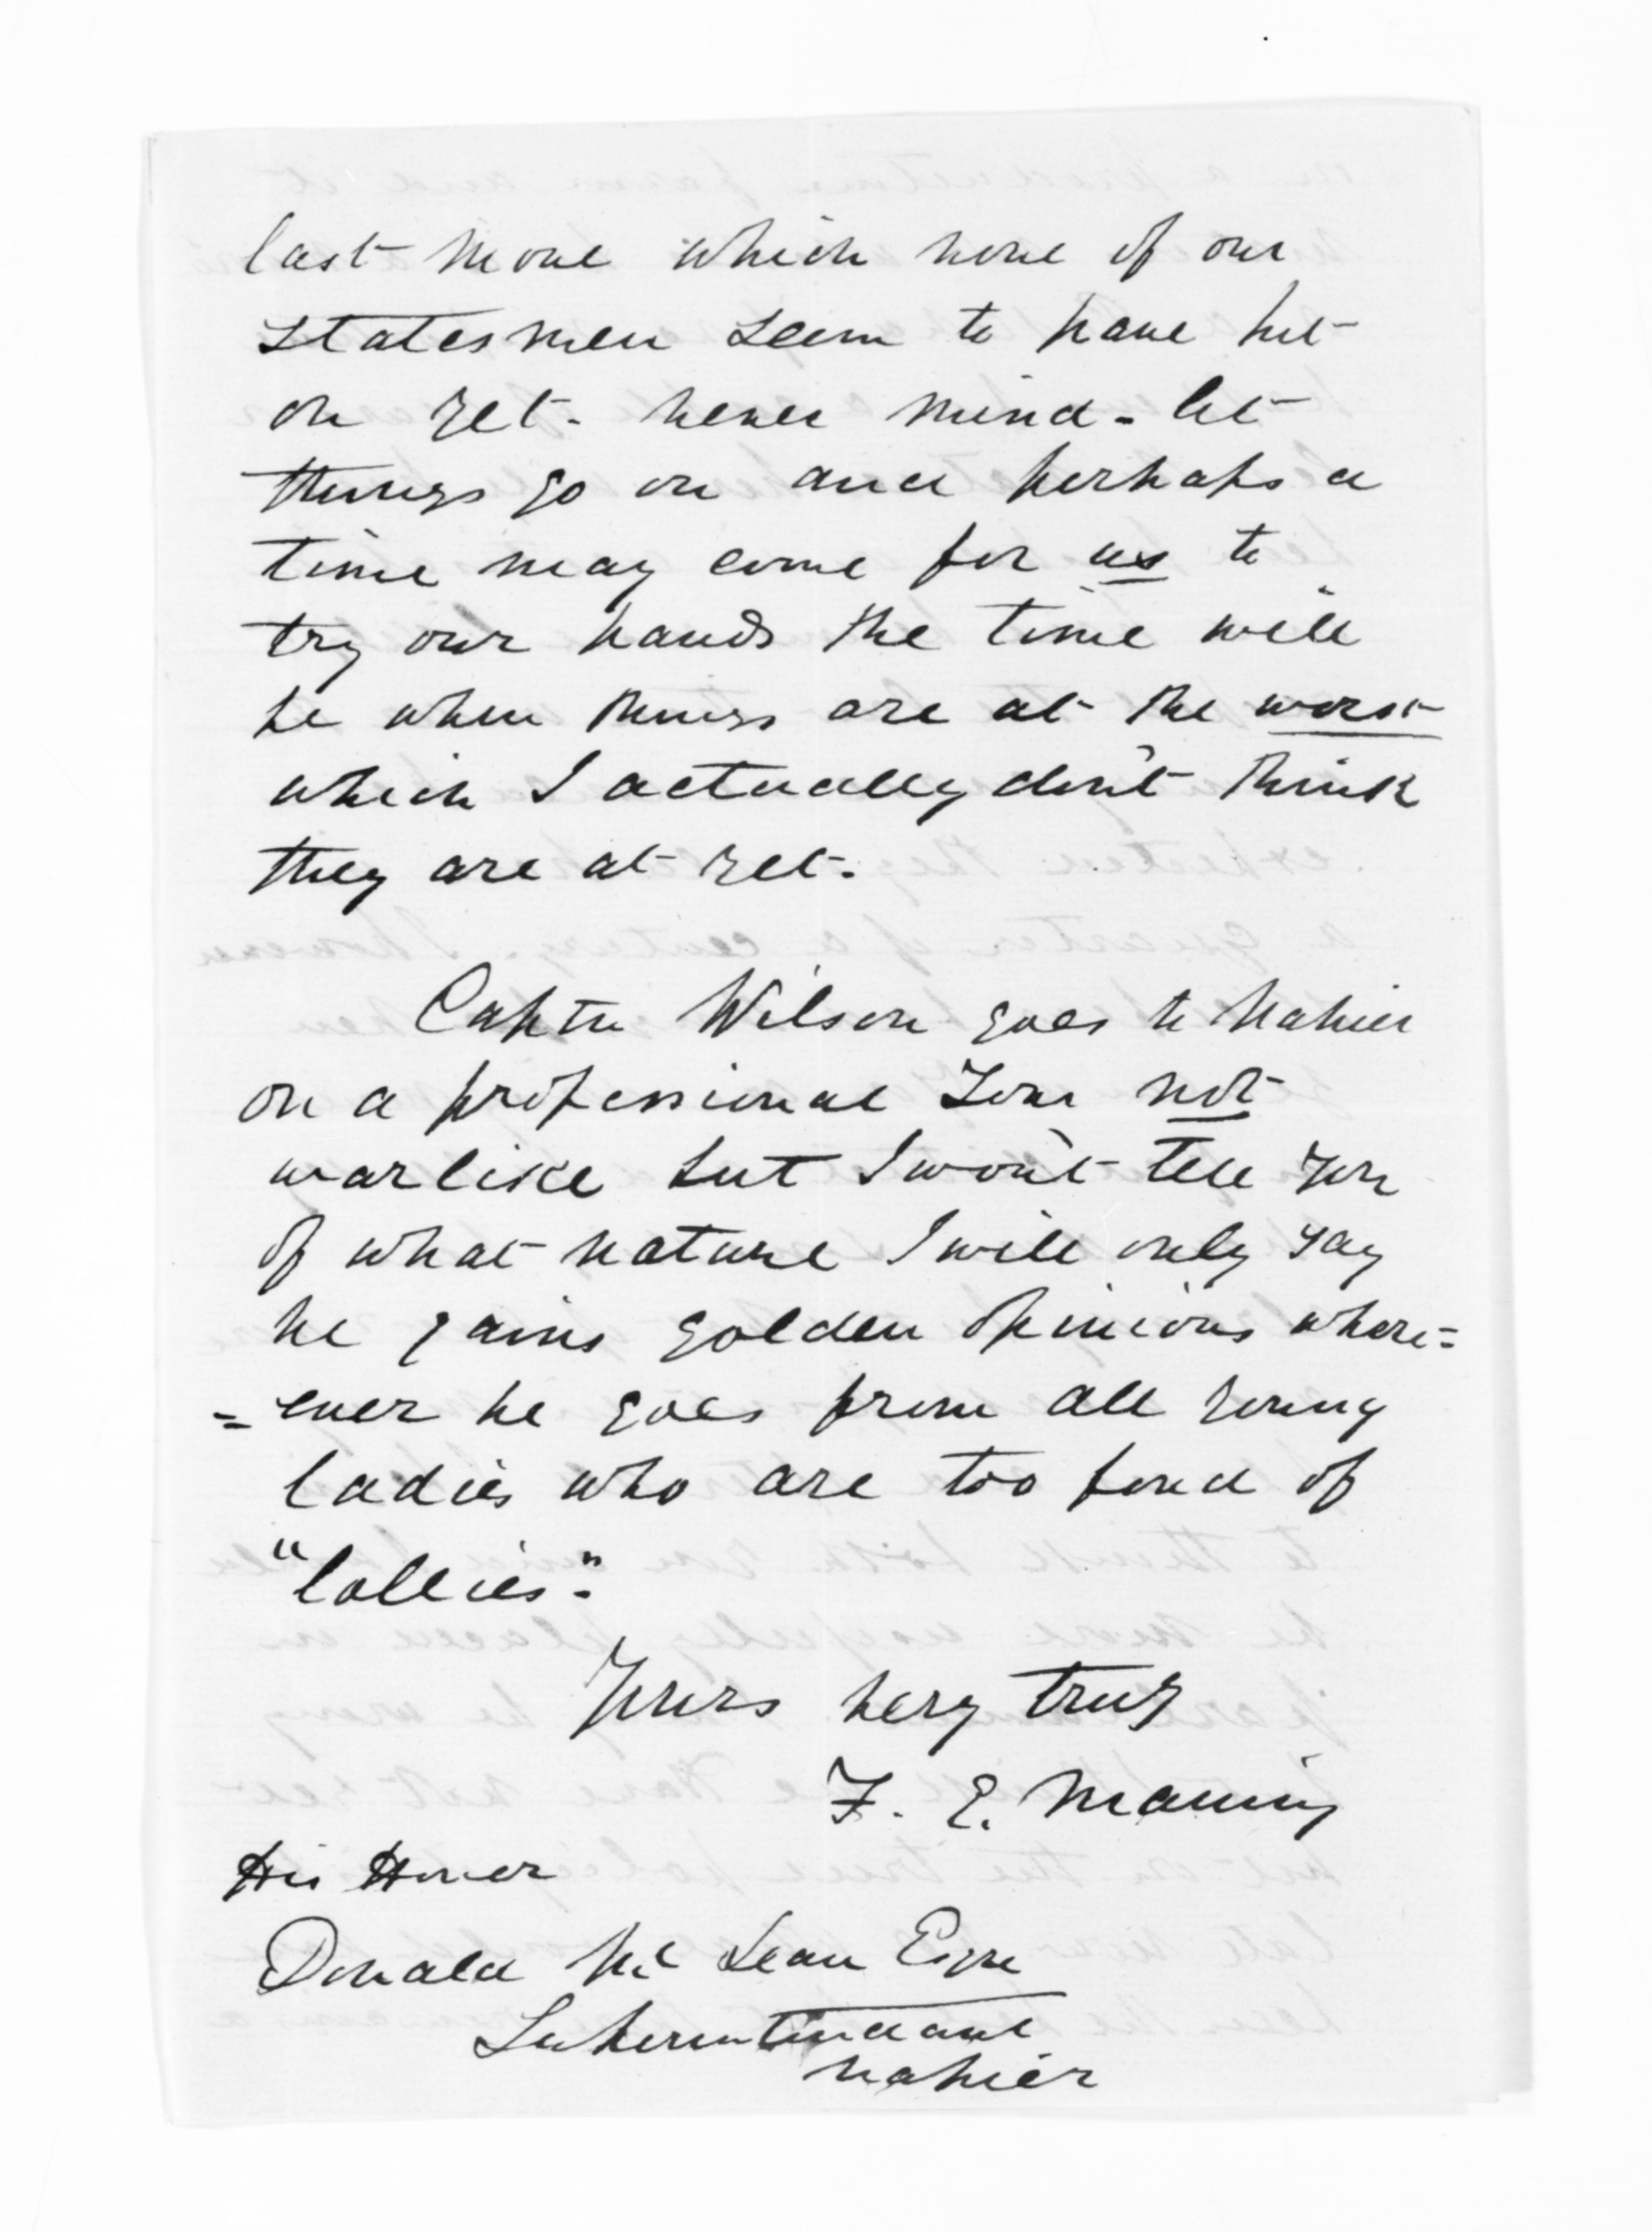 last move which none of our
statesmen seem to have hit
on yet. never mind - let
things go on and perhaps a
time may come for us to
try our hands the time will
be when things are at the worst
which I actually don't think
they are at yet.
Captn Wilson goes to Napier
on a professional Tour not
warlike but I won't tell you
of what nature I will only say
he gains golden opinions where=
=ever he goes from all young
ladies who are too fond of
"lollies".
Yours very truly
F. E. Maning
His Honor
Donald McLean Esqre
Superintendant
Napier